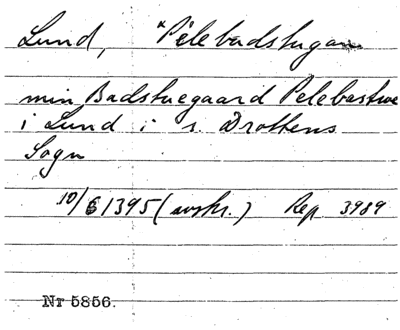 Lund, *Pelebadstugan
min Badstuegaard Pelebastwe
i Lund i s. Drottens
Sogn
10/6 1395 (avskr.) Rep 3989
Nr 5856.